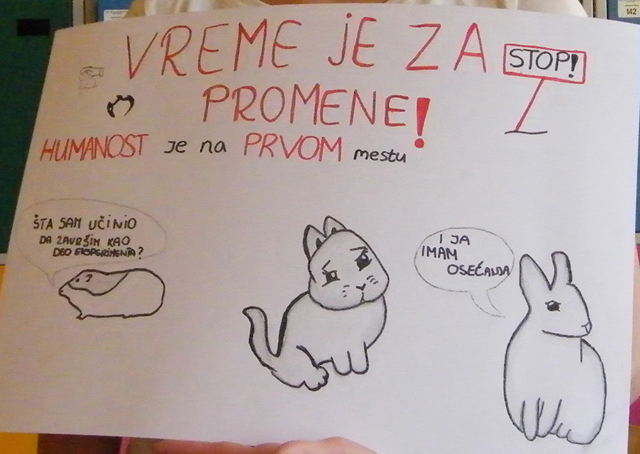 VREME JE ZA
STOP!
PROMENE!
HUMANOST je na PRVOM mestu
ŠTA SAM UČINIO
DA ZAVRŠIM KAO
DEO EKSPERIMENTA?
I JA
IMAM
OSEĆANJA
142